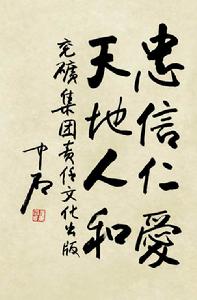 忠信仁愛
天地人和
兖礦集团責任文化出版